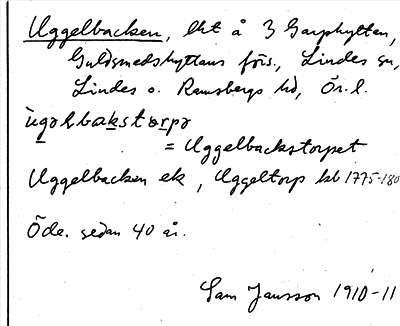 Uggelbacken, lht å 3 Garphyttan,
Guldsmedshyttans förs., Lindes sn,
Lindes o. Ramsbergs hd, Ör. l.
ùgəlbakstɔrpə
= Uggelbackstorpet
Uggelbacken ek, Uggeltorp kb 1775-180
Öde. sedan 40 år.
Sam Jansson 1910-11